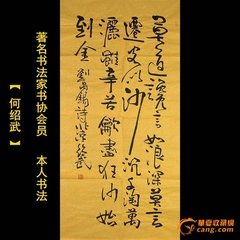 莫道讒言如浪深莫言
遷客似沙沉千淘萬
漉雖辛苦吹盡狂沙始
到金 劉禹錫詩
著名书法家书协会员 本人书法
【何绍武】
华夏收藏网
cang.com